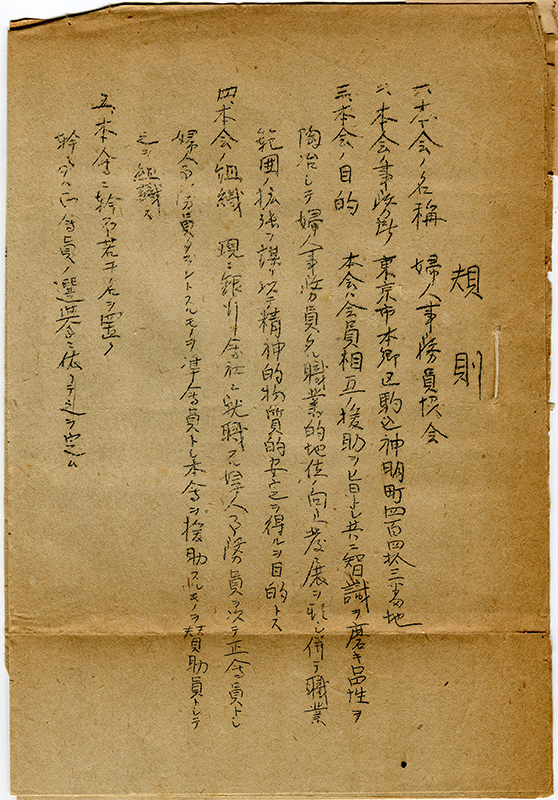 規則
一、本会ノ名称 婦人事務員協会
二、本会ノ事務所 東京市本郷区駒込神明町四百四拾三番地
三、本会ノ目的 本会ハ会員相互ノ援助ヲ旨トシ共ニ智識ヲ磨キ品性ヲ
陶冶シテ婦人事務員タル職業的地位ノ向上発展ヲ期シ併テ職業
範囲ノ拡張ヲ謀リ以テ精神的物質的安定ヲ得ルヲ目的トス
四、本会ノ組織 現ニ銀行會社ニ就職スル婦人事務員ヲ以テ正會員トシ
婦人事務員タラントスルモノヲ準會員トシ本會ヲ援助スルモノヲ賛助員トシテ
之ヲ組織ス
五、本會ニ幹事若干名ヲ置ク
幹事ハ正會員ノ選挙ニ依リテ之ヲ定ム